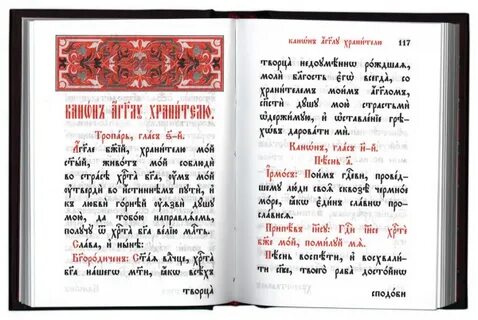 Канѡ́нъ а҆́гг҃лꙋ храни́телю.
Тропа́рь, гла́съ ѕ҃-й.
А҆́гг҃ле бж҃їй, храни́телю мо́й
ст҃ы́й, живо́тъ мо́й соблюдѝ
во стра́сѣ хрⷭ҇та̀ бг҃а, ᲂу҆́мъ мо́й
ᲂу҆твердѝ во и҆́стиннѣмъ пꙋтѝ, и҆
къ любвѝ го́рнѣй ᲂу҆ѧзвѝ дꙋ́шꙋ
мою̀, да тобо́ю направлѧ́емь,
полꙋчꙋ̀ ѿ хрⷭ҇та̀ бг҃а ве́лїю млⷭ҇ть.
Сла́ва, и҆ ны́нѣ:
Бг҃оро́диченъ: Ст҃а́ѧ влⷣчце, хрⷭ҇та̀
бг҃а на́шегѡ мт҃и, ꙗ҆́кѡ всѣ́хъ
творца̀
канѡ́нъ а҆́гг҃лꙋ храни́телю 117
творца̀ недоꙋмѣ́ннѡ ро́ждшаѧ,
молѝ бл҃гость є҆гѡ̀ всегда̀, со
храни́телемъ мои́мъ а҆́гг҃ломъ,
сп҃стѝ дꙋ́шꙋ мою̀ страстьмѝ
ѡ҆держи́мꙋю, и҆ ѡ҆ставле́нїе грѣ-
хѡ́въ дарова́ти мѝ.
Канѡ́нъ, гла́съ и҃-й.
Пѣ́снь а҃.
І҆рмо́съ: Пои́мъ гдⷭ҇еви, прове́д-
шемꙋ лю́ди своѧ̑ сквозѣ̀ чермно́е
мо́ре, ꙗ҆́кѡ є҆ди́нъ сла́внѡ про-
сла́висѧ.
Припѣ́въ і҆и҃сꙋ: Гдⷭ҇и і҆и҃се хрⷭ҇тѐ
бж҃е мо́й, поми́лꙋй мѧ̀.
Пѣ́снь воспѣ́ти, и҆ восхвали́-
ти сп҃се, твоего̀ раба̀ досто́йнѡ
сподо́би